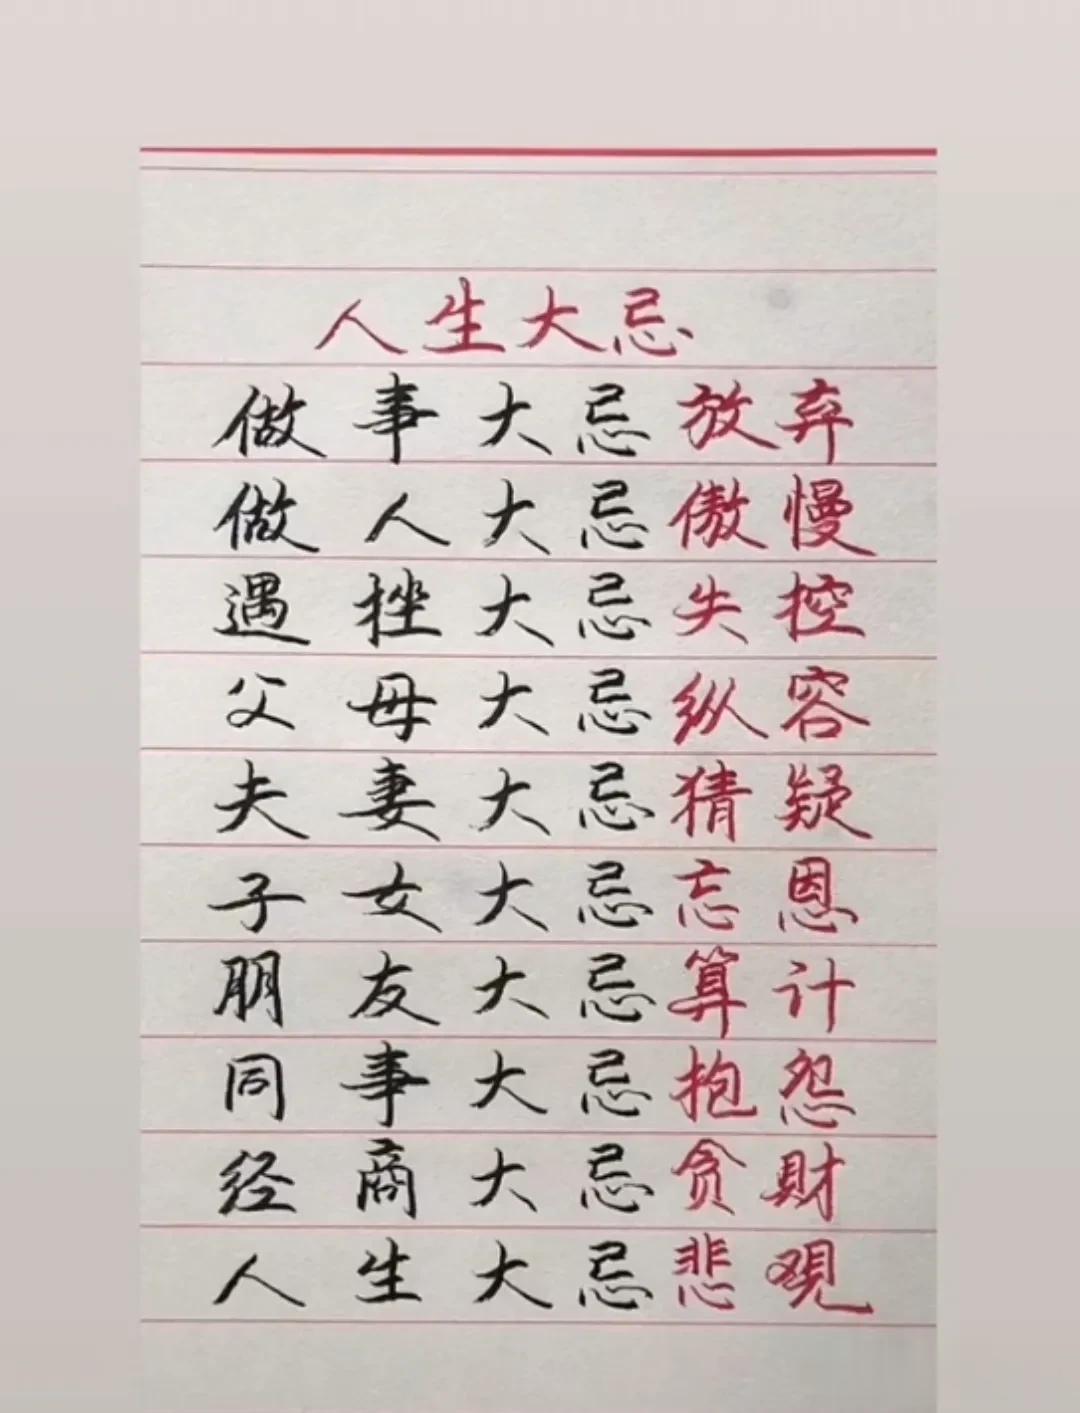 人生大忌
做事大忌放弃
做人大忌傲慢
遇挫大忌失控
父母大忌纵容
夫妻大忌猜疑
子女大忌忘恩
朋友大忌算计
同事大忌抱怨
经商大忌贪财
人生大忌悲观